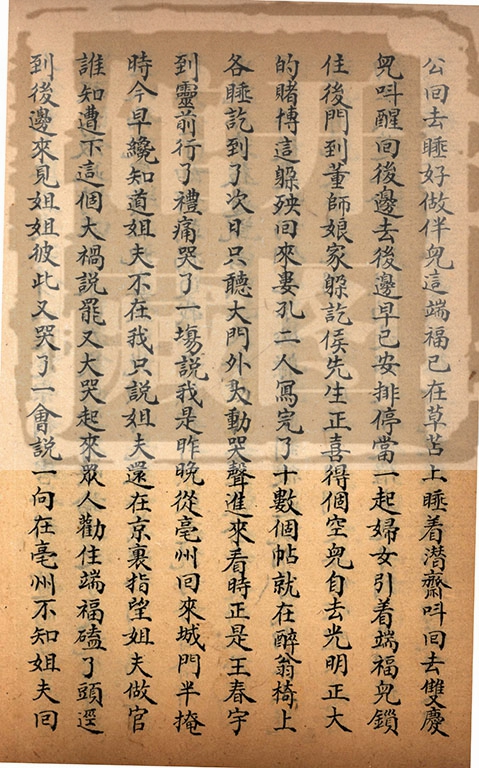 公回去睡好做伴兒這端福已在草苫上睡着潜齋呌回去雙慶
兒呌醒回後邊去後邊早已安排停當一起婦女引着端福兒鎖
住後門到董師娘家躲訖侯先生正喜得個空兒自去光明正大
的賭博這躲殃回來婁孔二人寫完了十數個帖就在醉翁椅上
各睡訖到了次日只聽大門外火動哭聲進來看時正是王春宇
到靈前行了禮痛哭了一塲說我是昨晚從亳州回來城門半掩
時今早纔知道姐夫不在我只說姐夫還在京裏指望姐夫做官
誰知遭下這個大禍說罷又大哭起來眾人勸住端福磕了頭逕
到後邊來見姐姐彼此又哭了一會說一向在亳州不知姐夫回